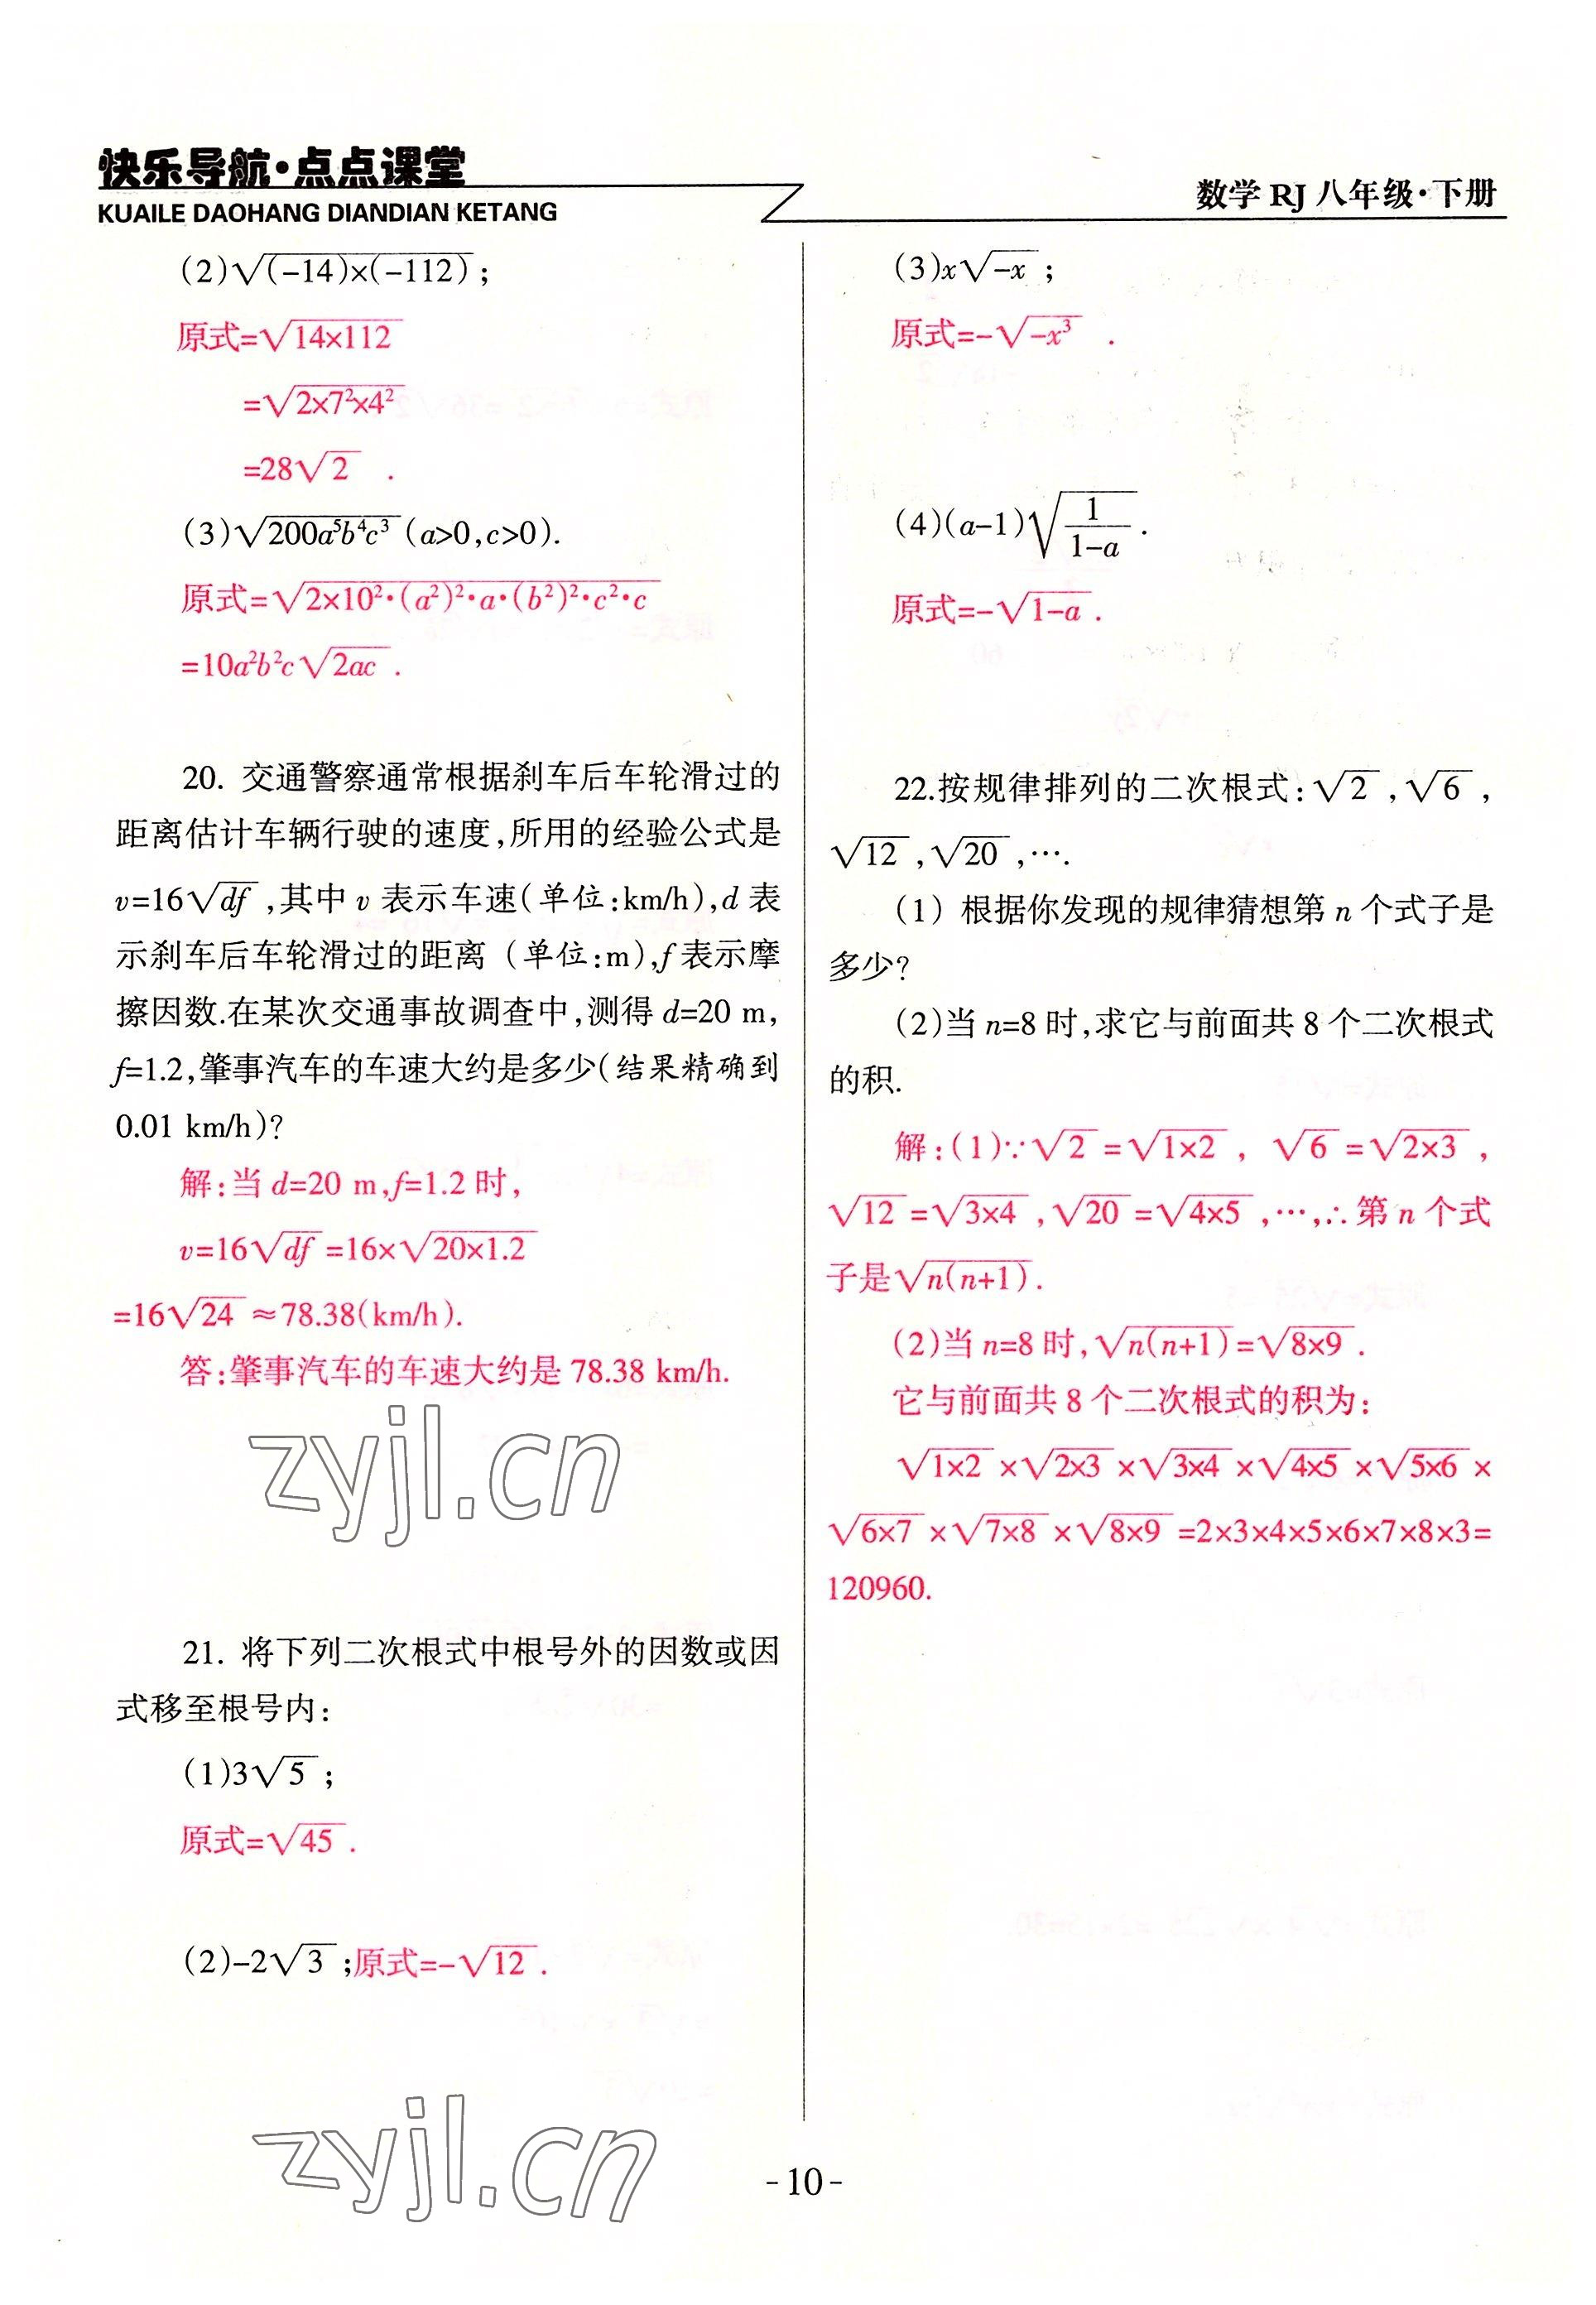 快乐导航·点点课堂
KUAILE DAOHANG DIANDIAN KETANG
数学 RJ 八年级·下册
(2)√(-14)×(-112) ;
原式=√14×112
=√2×7²×4²
=28√2 .
(3)√200a⁵b⁴c³ (a>0,c>0).
原式=√2×10²·(a²)²·a·(b²)²·c²·c
=10a²b²c√2ac .
20. 交通警察通常根据刹车后车轮滑过的
距离估计车辆行驶的速度,所用的经验公式是
v=16√df ,其中 v 表示车速(单位:km/h),d 表
示刹车后车轮滑过的距离 (单位:m),f 表示摩
擦因数.在某次交通事故调查中,测得 d=20 m,
f=1.2,肇事汽车的车速大约是多少(结果精确到
0.01 km/h)?
解:当 d=20 m,f=1.2 时,
v=16√df =16×√20×1.2
=16√24 ≈78.38(km/h).
答:肇事汽车的车速大约是 78.38 km/h.
zyjl.cn
21. 将下列二次根式中根号外的因数或因
式移至根号内:
(1)3√5 ;
原式=√45 .
(2)-2√3 ;原式=-√12 .
zyjl.cn
(3)x√-x ;
原式=-√-x³ .
(4)(a-1)√1/(1-a) .
原式=-√1-a .
22.按规律排列的二次根式:√2 ,√6 ,
√12 ,√20 ,….
(1) 根据你发现的规律猜想第 n 个式子是
多少?
(2)当 n=8 时,求它与前面共 8 个二次根式
的积.
解:(1)∵√2 =√1×2 , √6 =√2×3 ,
√12 =√3×4 ,√20 =√4×5 ,…,∴第 n 个式
子是√n(n+1) .
(2)当 n=8 时,√n(n+1) =√8×9 .
它与前面共 8 个二次根式的积为:
√1×2 ×√2×3 ×√3×4 ×√4×5 ×√5×6 ×
√6×7 ×√7×8 ×√8×9 =2×3×4×5×6×7×8×3=
120960.
-10-